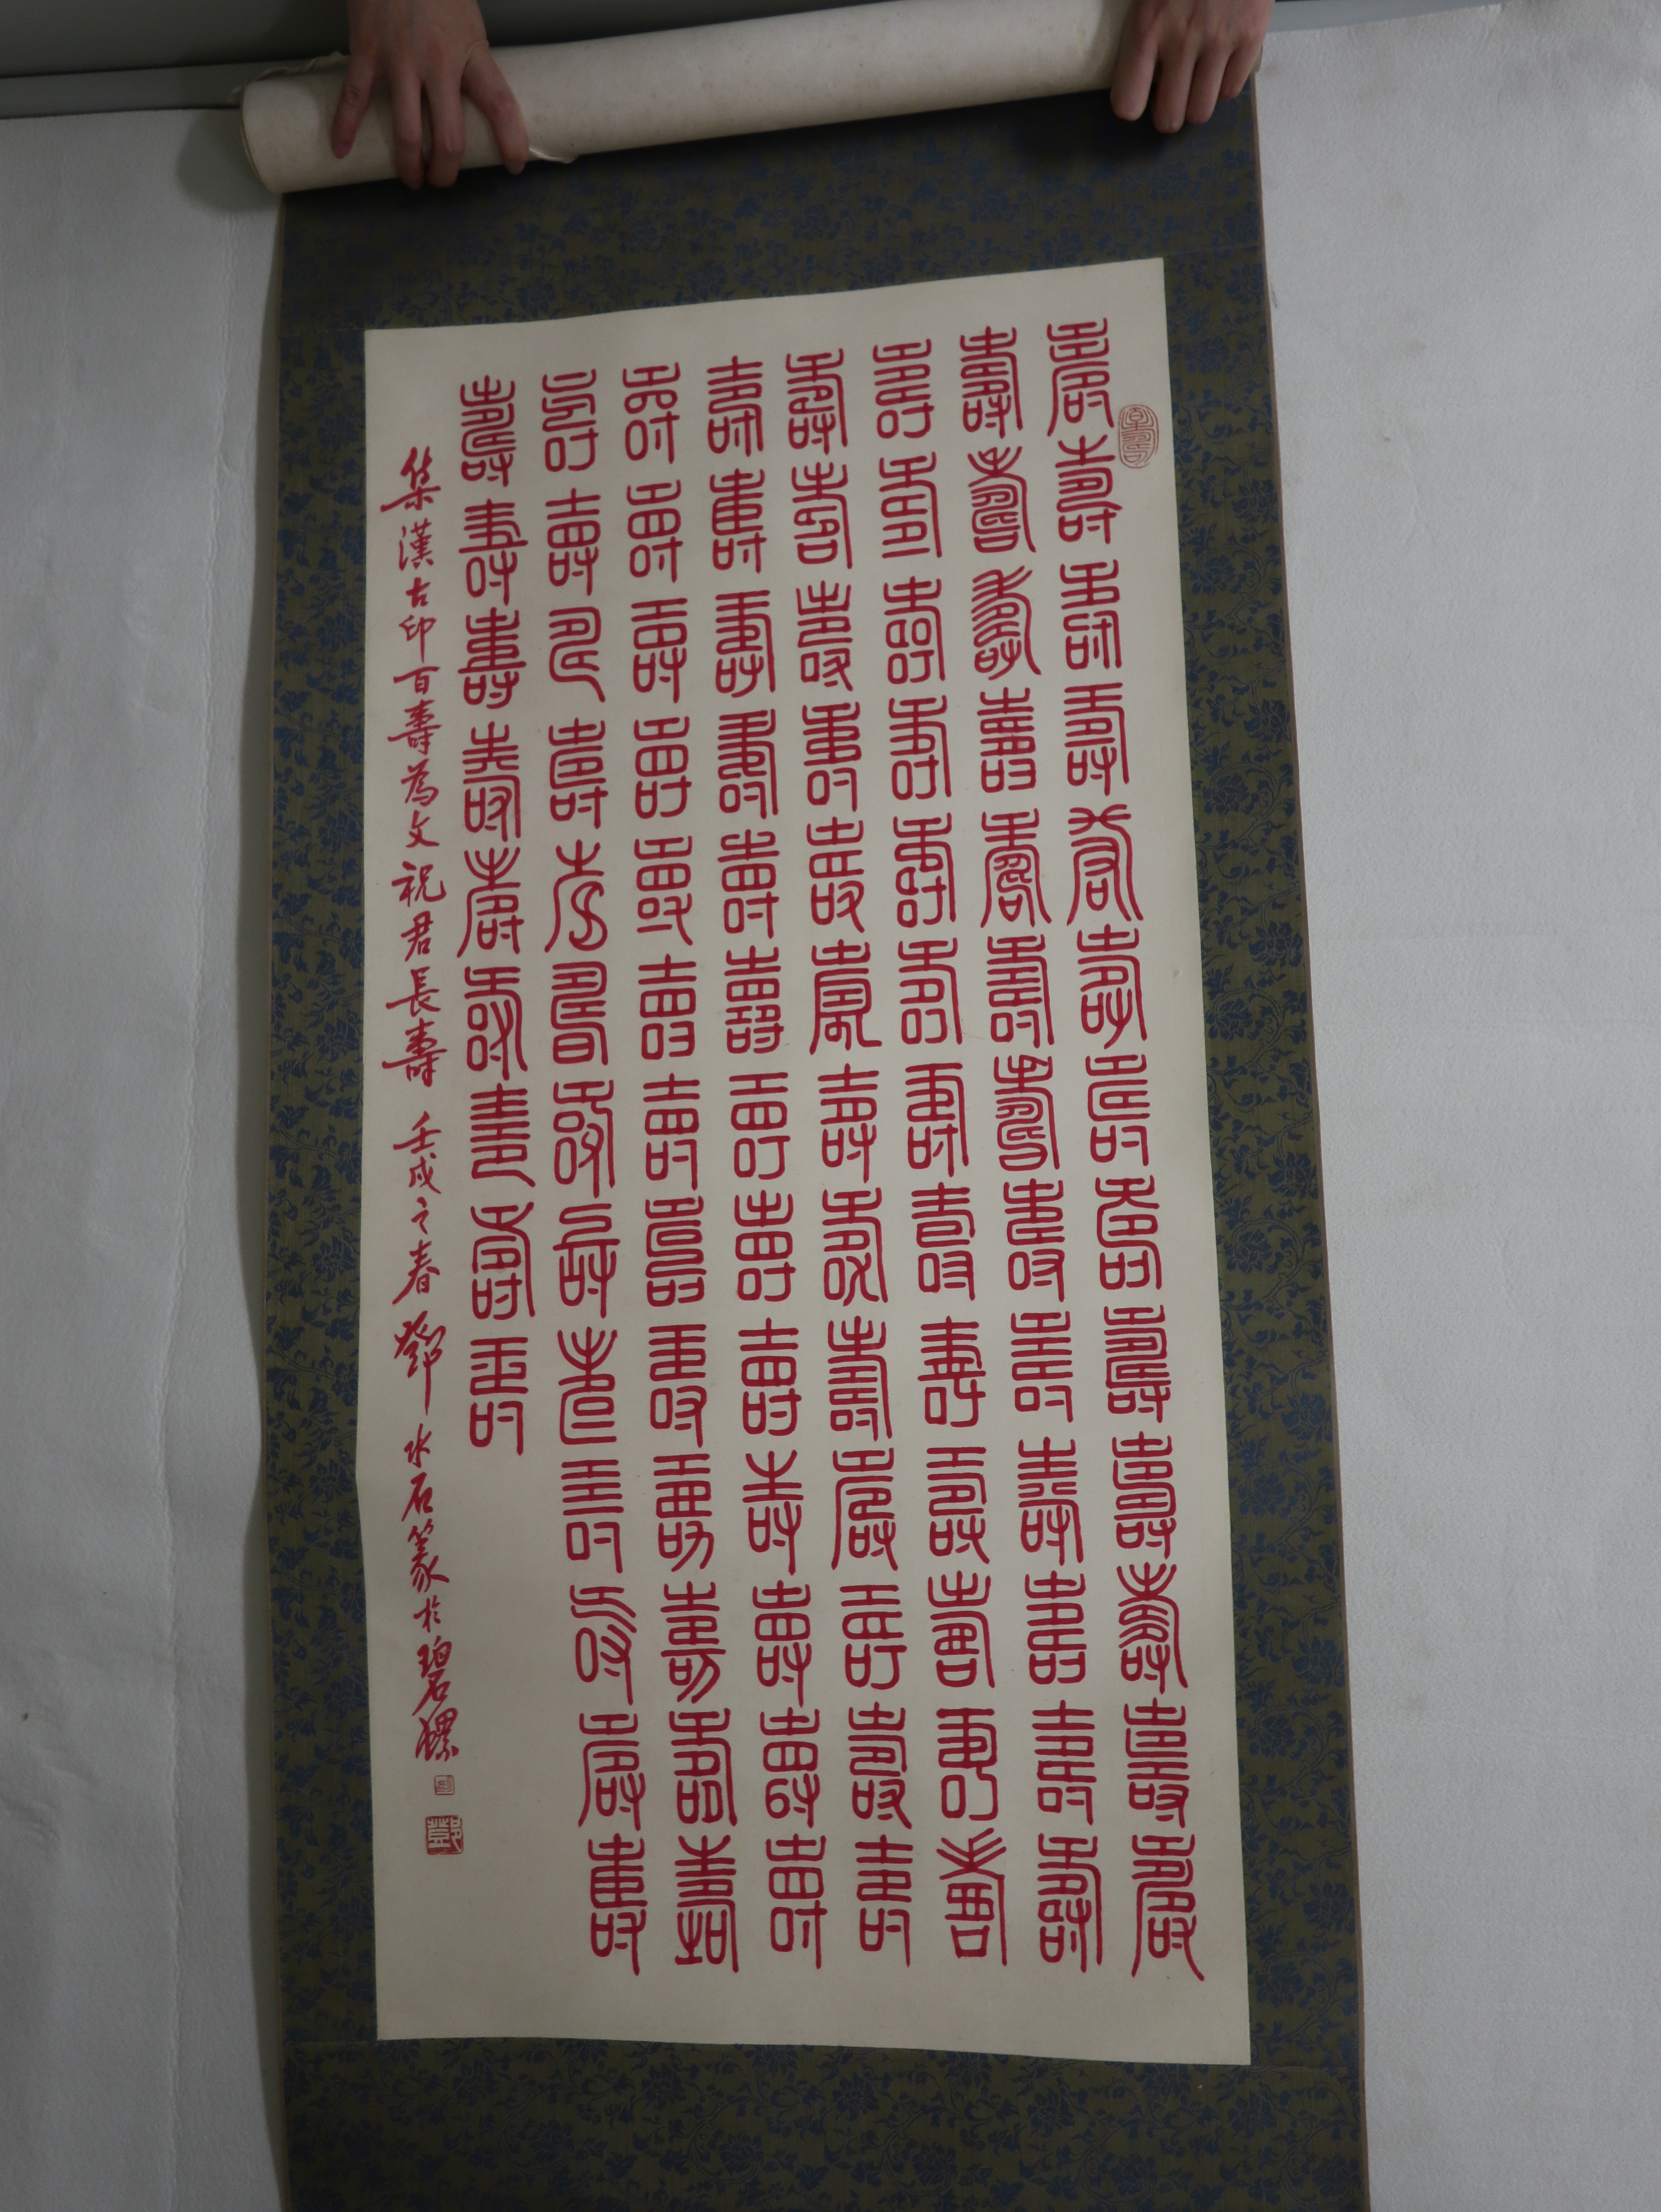 壽壽壽壽壽壽壽壽壽壽壽壽壽
壽壽壽壽壽壽壽壽壽壽壽壽壽
壽壽壽壽壽壽壽壽壽壽壽壽壽
壽壽壽壽壽壽壽壽壽壽壽壽壽
壽壽壽壽壽壽壽壽壽壽壽壽壽
壽壽壽壽壽壽壽壽壽壽壽壽壽
壽壽壽壽壽壽壽壽壽壽壽壽壽
壽壽壽壽壽壽壽壽壽
集漢古印百壽為文祝君長壽 壬戌之春 鄧水石篆於碧螺
鄧